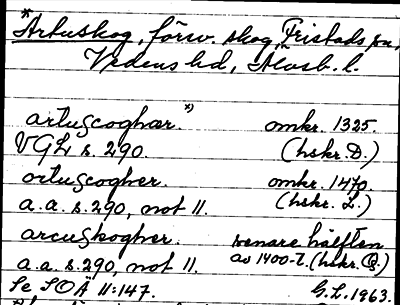 *Artuskog, försv. skog, Fristads sn,
Vedens hd, Älvsb. l.
artuscoghær.*) omkr. 1325.
VGL s. 290. (hskr. D.)
artuscogher. omkr. 1470.
a.a. s. 290, not 11. (hskr. L.)
arcuskogher. senare hälften
a.a. s. 290, not 11. av 1400-t. (hskr. G.)
Se SOÄ 11:147. G.L. 1963.